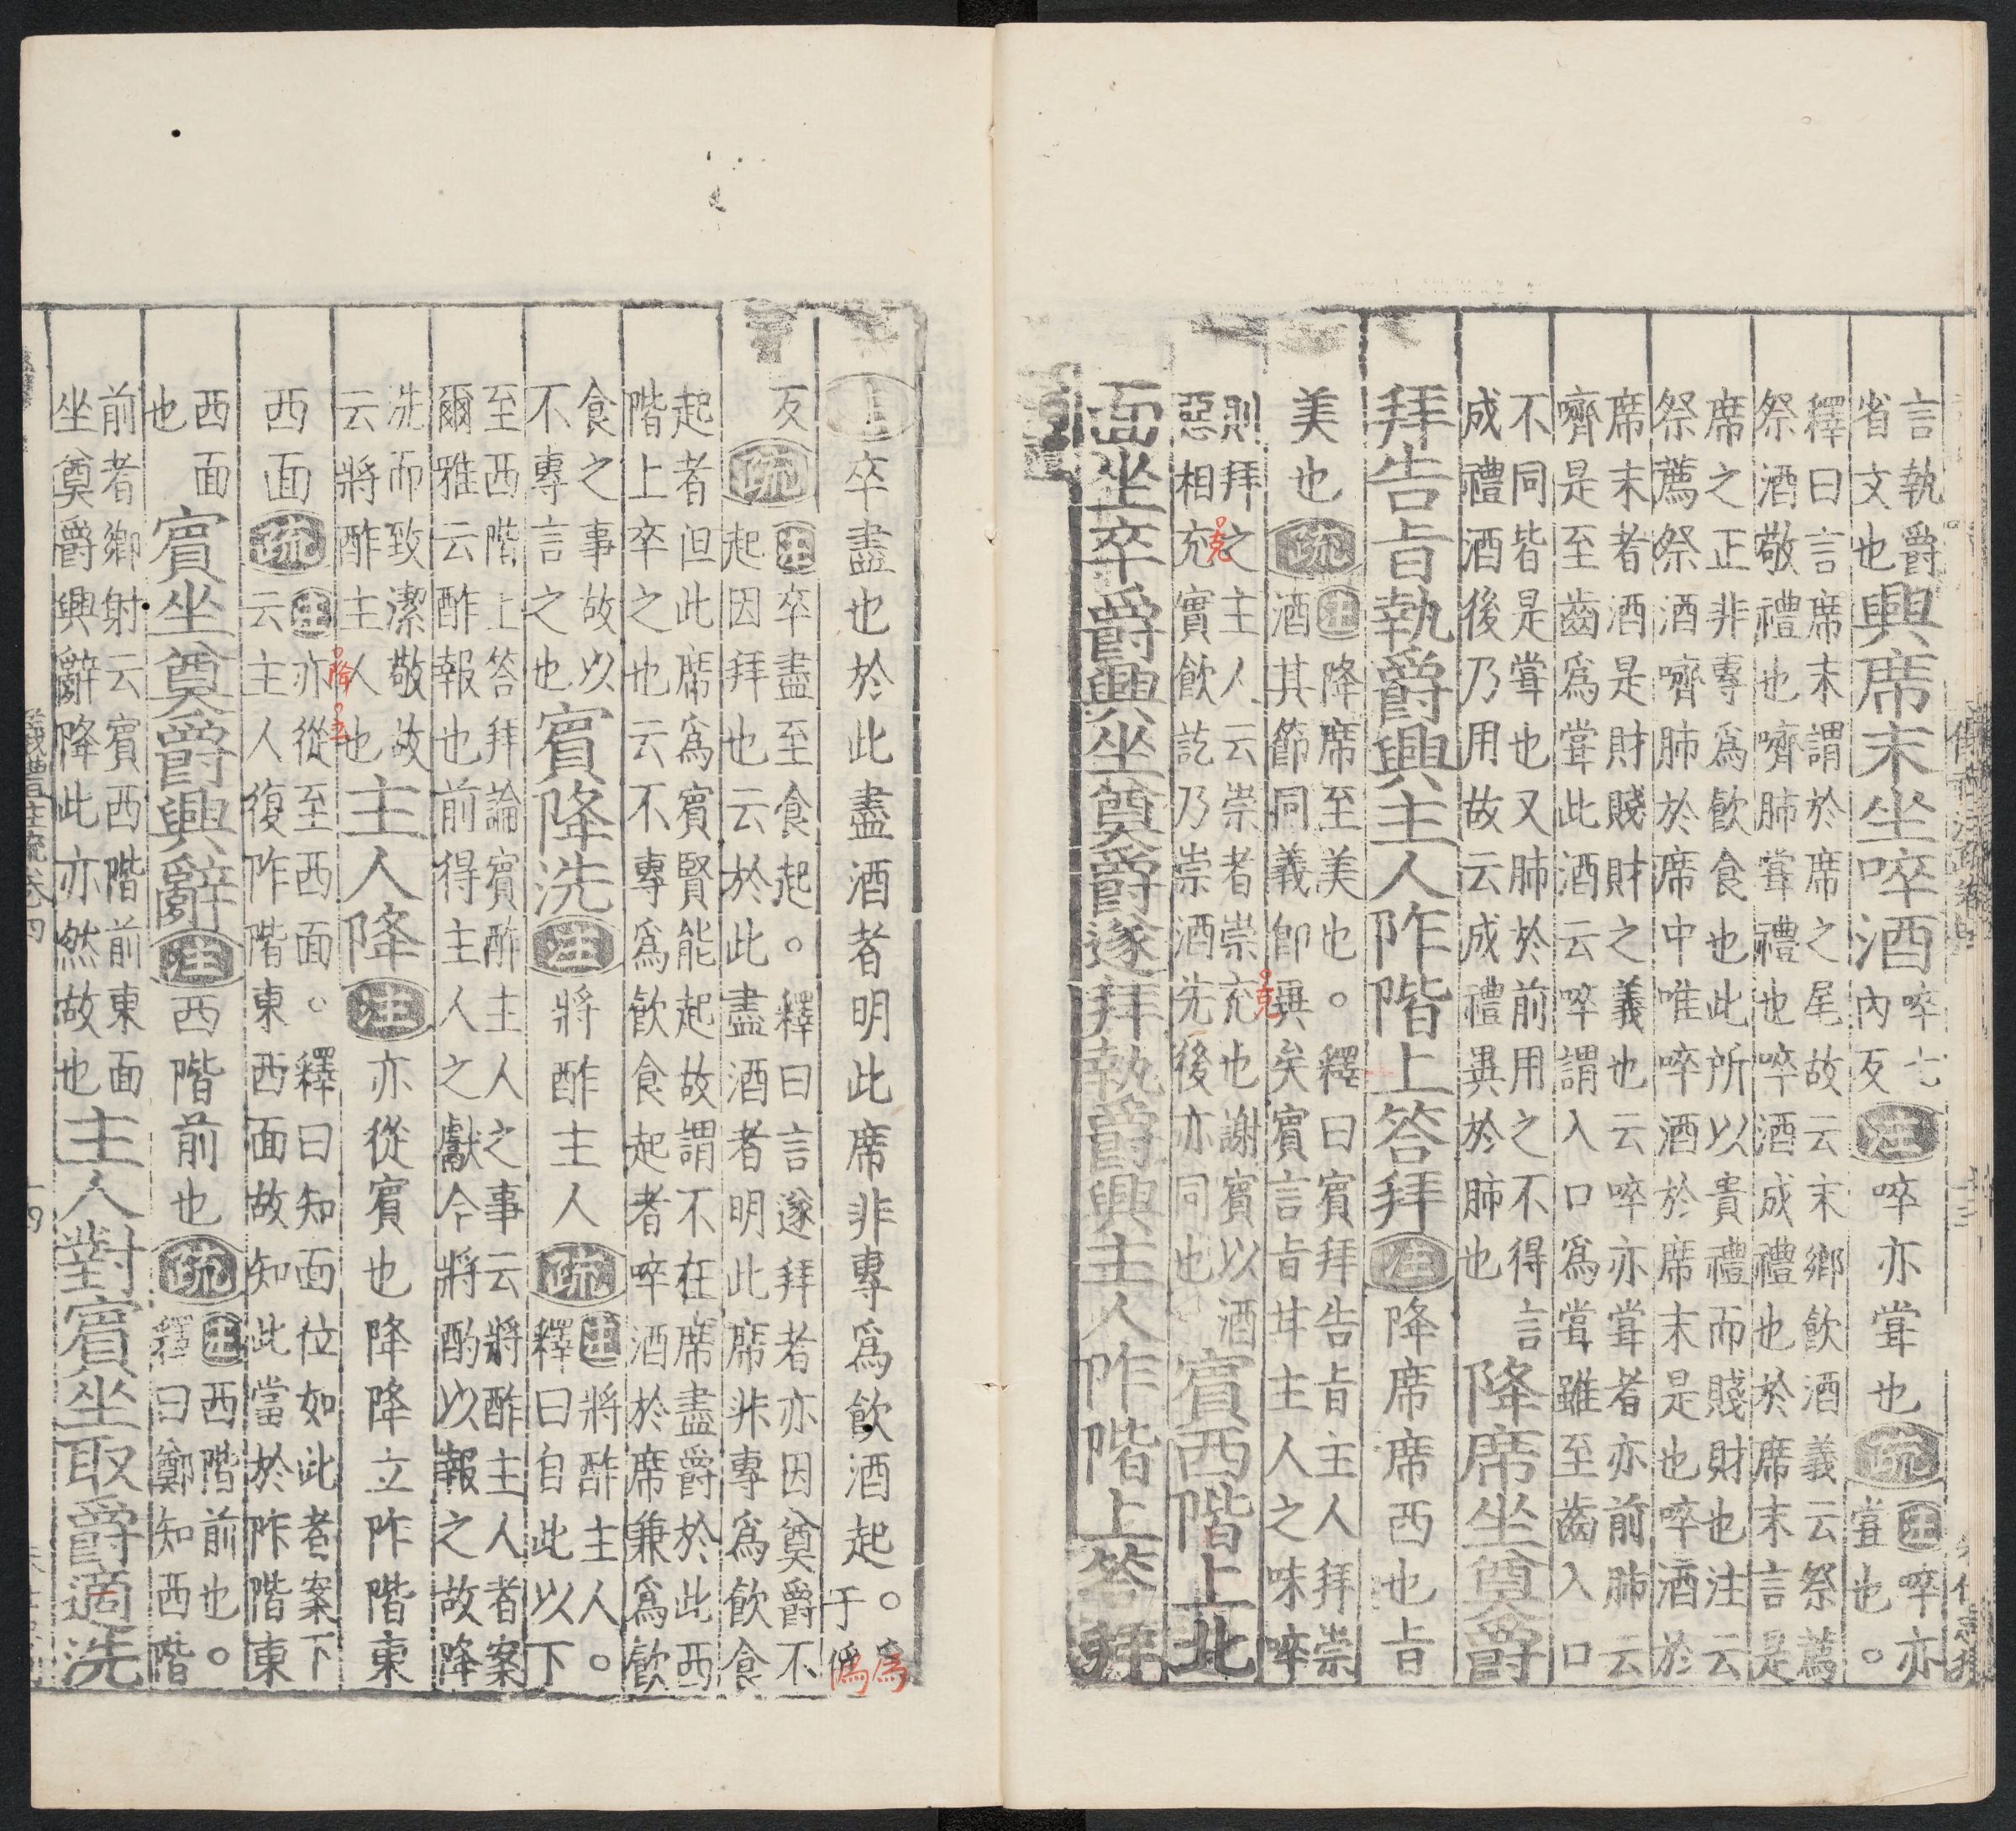 言執爵
省文也
興席末坐啐酒
啐七
內反
注
啐亦嘗也
疏
注啐亦
嘗也。
釋曰言席末謂於席之尾故云末鄉飲酒義云祭薦
祭酒敬禮也嚌肺嘗禮也啐酒成禮也於席末言是
席之正非專為飲食也此所以貴禮而賤財也注云
祭薦祭酒嚌肺於席中唯啐酒於席末是也啐酒於
席末者酒是財賤財之義也云啐亦嘗者亦前肺云
嚌是至齒為嘗此酒云啐謂入口為嘗雖至齒入口
不同皆是嘗也又肺於前用之不得言
成禮酒後乃用故云成禮異於肺也
降席坐奠爵
拜告旨執爵興主人阼階上答拜
注
降席席西也旨
美也
疏
注降席至美也。釋曰賓拜告旨主人拜崇
酒其節同義即異矣賓言旨甘主人之味啐
則拜之主人云崇者崇充也謝賓以酒
惡相充實飲訖乃崇酒先後亦同也
賓西階上北
面坐卒爵興坐奠爵遂拜執爵興主人阼階上答拜
注
卒盡也於此盡酒者明此席非專為飲酒起。
為
于偽
反
疏
注卒盡至食起。釋曰言遂拜者亦因奠爵不
起因拜也云於此盡酒者明此席非專為飲食
起者但此席為賓賢能起故謂不在席盡爵於此西
階上卒之也云不專為飲食起者啐酒於席兼為飲
食之事故以
不專言之也
賓降洗
注
將酢主人
疏
注將酢主人。
釋曰自此以下
至西階上答拜論賓酢主人之事云將酢主人者案
爾雅云酢報也前得主人之獻今將酌以報之故降
洗而致潔敬故
云將酢主人也
主人降
注
亦從賓也降降立阼階東
西面
疏
注亦從至西面。釋曰知面位如此者案下
云主人復阼階東西面故知此當於阼階東
西面
也
賓坐奠爵興辭
注
西階前也
疏
注西階前也。
釋曰鄭知西階
前者鄉射云賓西階前東面
坐奠爵興辭降此亦然故也
主人對賓坐取爵適洗